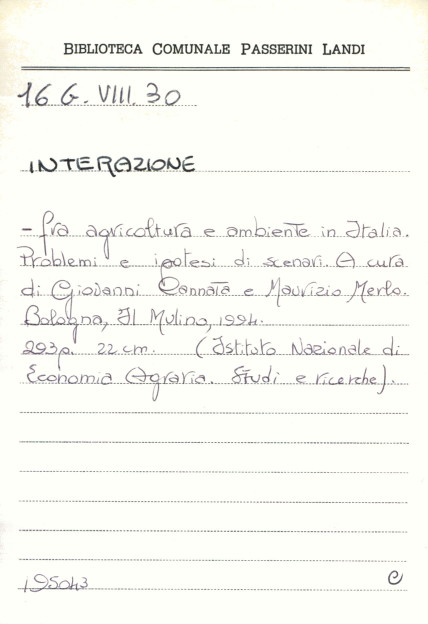 BIBLIOTECA COMUNALE PASSERINI LANDI
16 G. VIII. 30
INTERAZIONE
- fra agricoltura e ambiente in Italia.
Problemi e ipotesi di scenari. A cura
di Giovanni Cannata e Maurizio Merlo.
Bologna, Il Mulino, 1994.
293p. 22 cm. (Istituto Nazionale di
Economia Agraria. Studi e ricerche).
195043 C